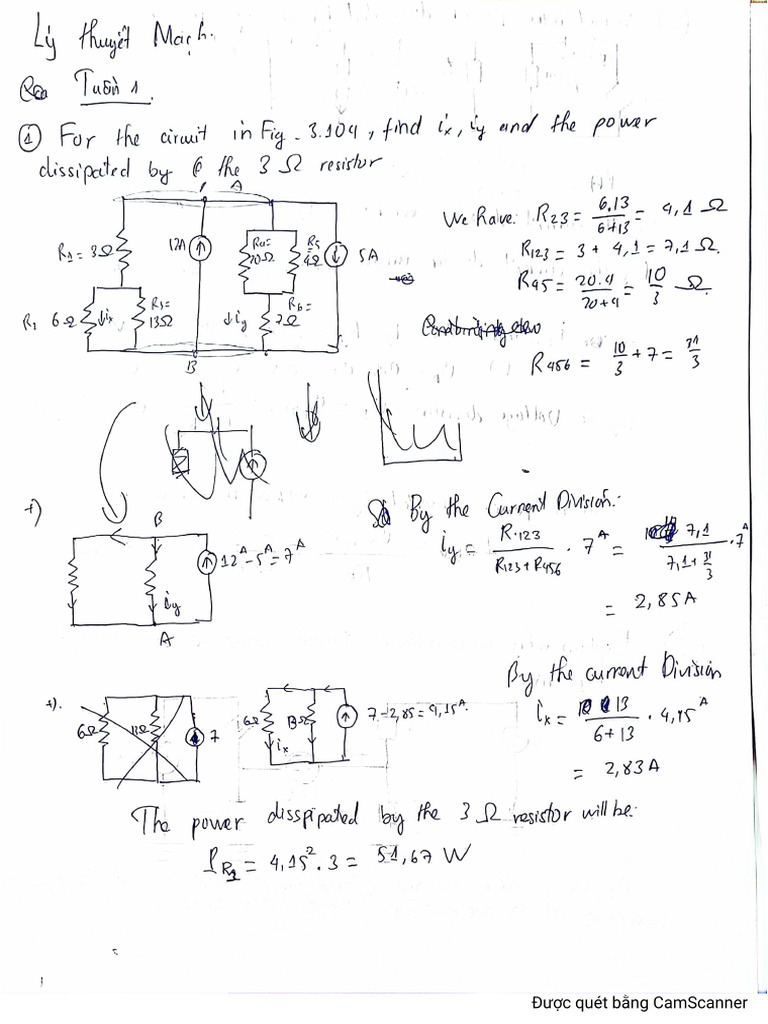 Lý thuyết Mạch.
Tuần 1
① For the circuit in Fig. 3.104, find ix, iy and the power
dissipated by the 3 Ω resistor
A
R1 = 3Ω
12A
R4= 20Ω
R5 4Ω
5A
R2 6Ω
ix
R3= 13Ω
iy
R6= 7Ω
B
We have: R23 = 6.13/6+13 = 4,1 Ω
R123 = 3 + 4,1 = 7,1 Ω.
R45 = 20.4/20+4 = 10/3 Ω.
R456 = 10/3 + 7 = 31/3
+)
B
12A - 5A = 7A
iy
A
By the Current Division:
iy = R123/R123+R456 . 7A = 7,1/7,1+31/3 . 7A
= 2,85A
+).
6Ω
13Ω
7
6Ω
ix
13Ω
7-2,85 = 4,15A.
By the current Division
ix = 13/6+13 . 4,15A
= 2,83A
The power disspipated by the 3 Ω resistor will be:
PR1 = 4,15². 3 = 51,67 W
Được quét bằng CamScanner